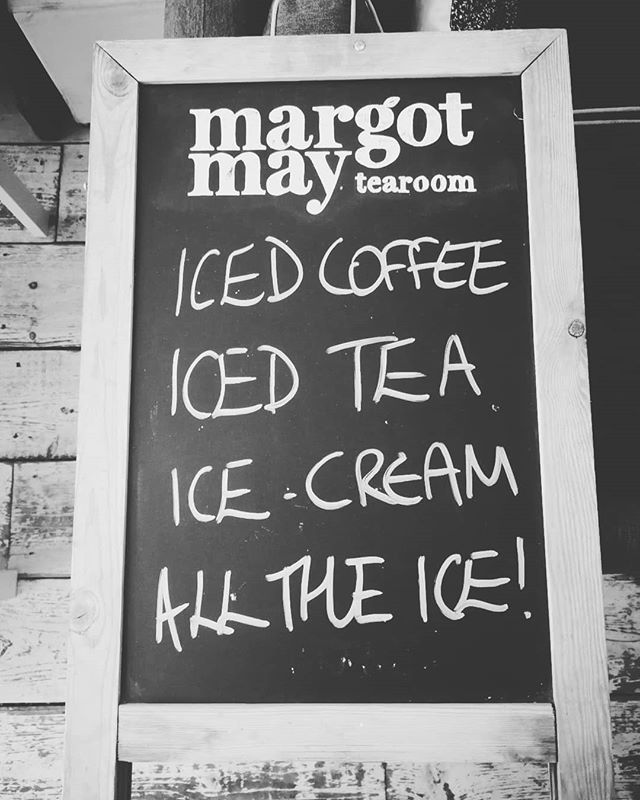 margot
may tearoom
ICED COFFEE
ICED TEA
ICE-CREAM
ALL THE ICE!